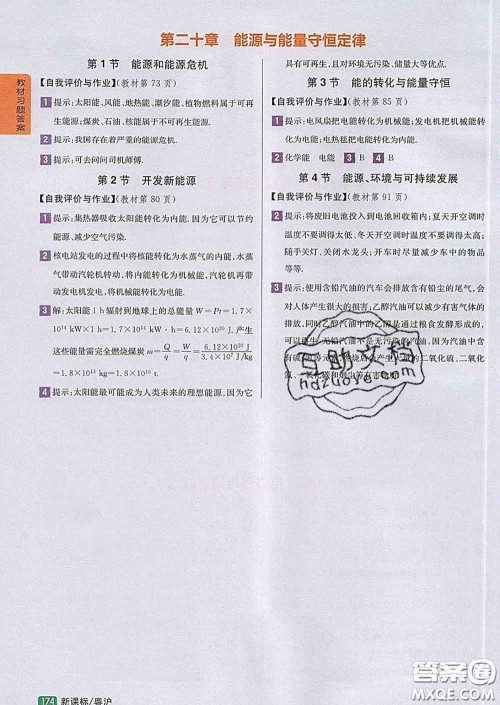 第二十章 能源与能量守恒定律
教材习题答案
第1节 能源和能源危机
【自我评价与作业】(教材第73页)
1 提示:太阳能、风能、地热能、潮汐能、植物燃料属于可再
生能源;煤炭、石油、核能属于不可再生能源。
2 提示:我国存在着严重的能源危机。
3 提示:可去问问司机师傅。
第2节 开发新能源
【自我评价与作业】(教材第80页)
1 提示:集热器吸收太阳能转化为内能。因为它可以节约
能源、减少空气污染。
2 核电站发电的过程中将核能转化为水蒸气的内能,水蒸
气带动汽轮机转动,将内能转化为机械能,汽轮机再带
动发电机发电,将机械能转化为电能。
3 解:太阳能1 h辐射到地球上的总能量W=Pt=1.7×
10¹⁴ kW×1 h=1.7×10¹⁴ kW·h=6.12×10²⁰ J,产生
这些能量需完全燃烧煤炭m=Q/q=W/q=6.12×10²⁰ J/3.4×10⁷ J/kg
=1.8×10¹³ kg=1.8×10¹⁰ t
4 提示:太阳能可能成为人类未来的理想能源,因为它
具有可再生,且对环境无污染、储量大等优点。
第3节 能的转化与能量守恒
【自我评价与作业】(教材第85页)
1 提示:电风扇把电能转化为机械能;发电机把机械能转
化为电能;电热毯把电能转化为内能。
2 化学能 电能 3 B 4 B
第4节 能源、环境与可持续发展
【自我评价与作业】(教材第91页)
2 提示:将废旧电池投入到电池回收箱内;夏天开空调时
温度不要调得太低;冬天开空调时温度不要调得太高;
随手关灯、关闭水龙头;开车时尽量减少车中的物品
等。
3 提示:使用含铅汽油的汽车会排放含有铅尘的尾气,会
对人体产生很大的损害;乙醇汽油可以减少有害气体
的排放,同时乙醇汽油中的乙醇是由粮食发酵形成的,
可以再生。无铅汽油不是无污染的汽油,因为汽油中含
有
174 新课标/粤沪
答案圈
MXQE.COM